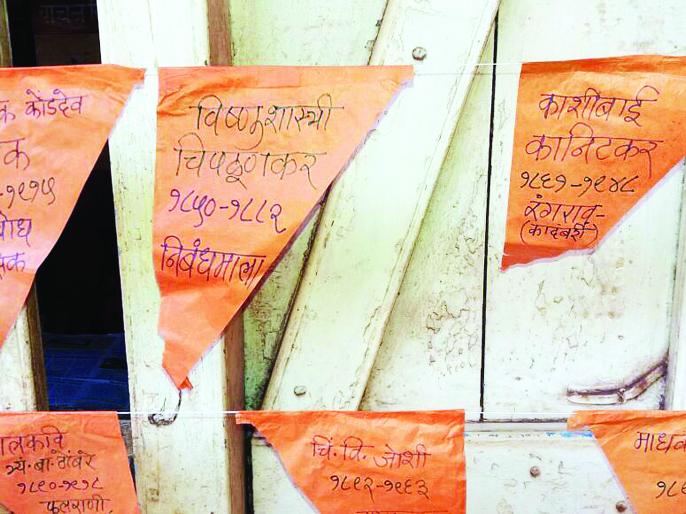 कोंडदेव
क
-१९१५
विष्णुशास्त्री
चिपळूणकर
१८५०-१८८२
निबंधमाला
काशीबाई
कानिटकर
१८६१-१९४८
रंगराव-
(कादंबरी)
बालकवि
त्र्यं. बा. ठोंबरे
१८९०-१९१८
फुलराणी
चिं. वि. जोशी
१८९२-१९६३
माधव
१८